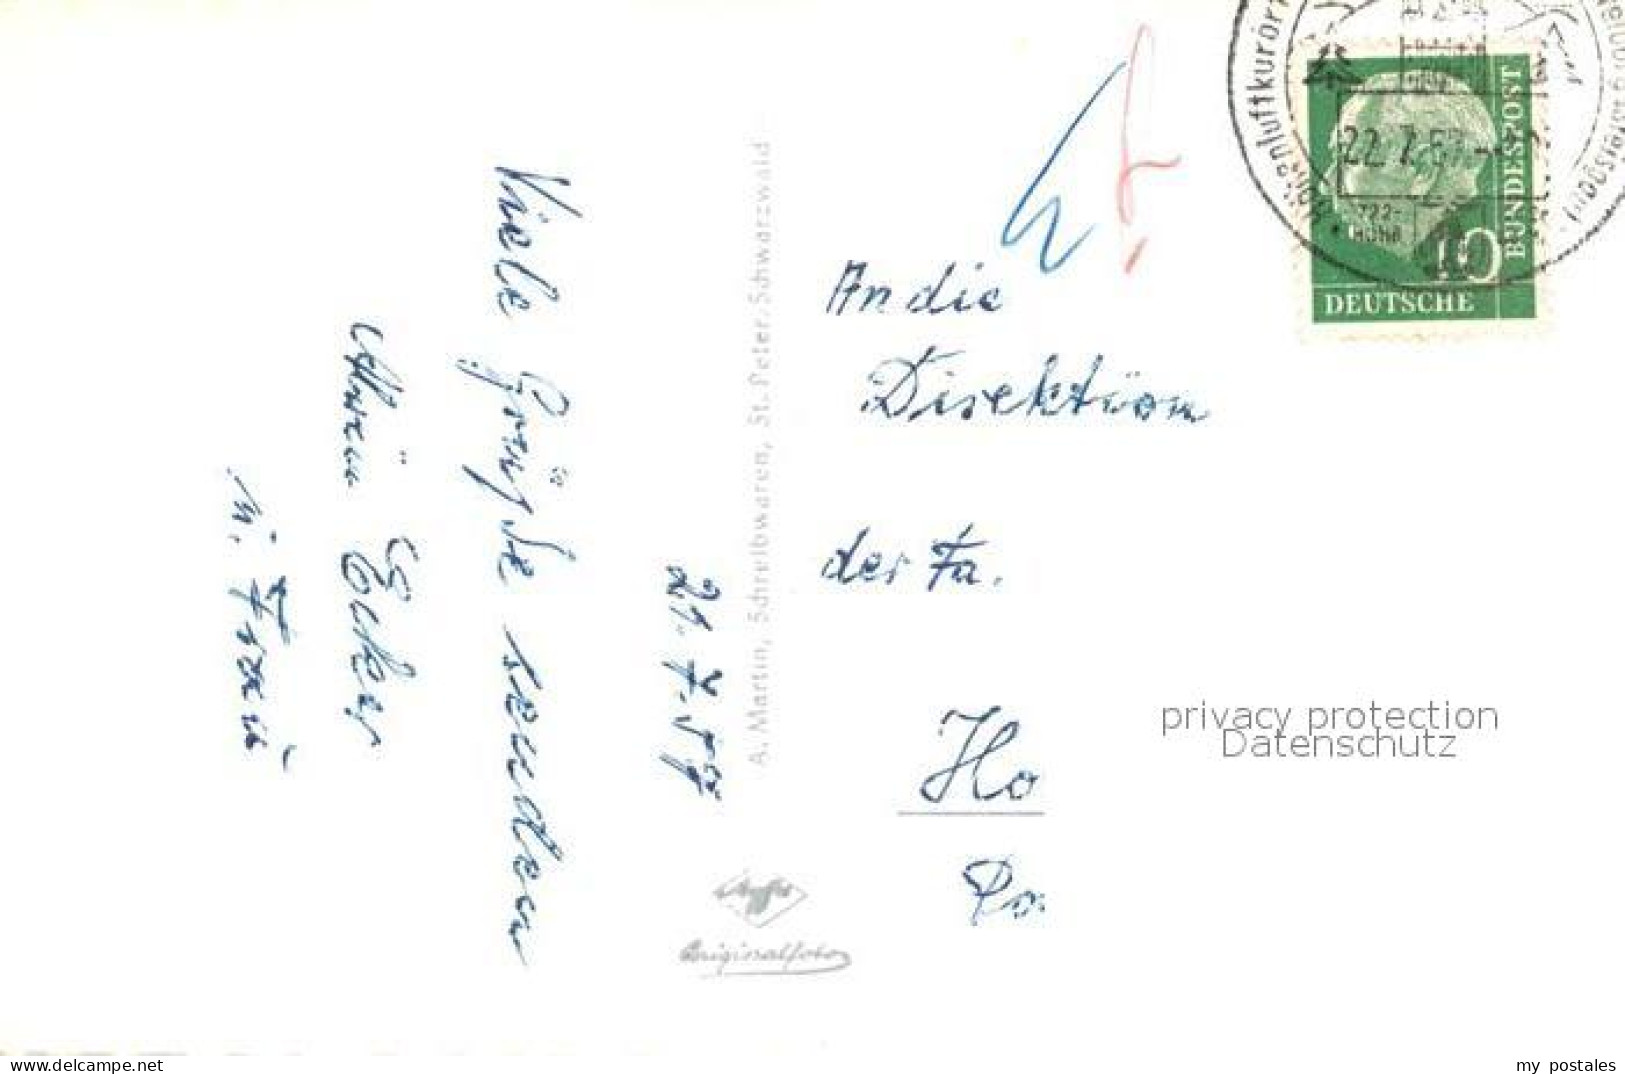 Viele Grüße senden
Ecker
u. Frau
21.7.57
A. Martin, Schreibwaren, St. Peter, Schwarzwald
Agfa
Originalfoto
An die
Direktion
der Fa.
Ho
Höhenluftkurort
22.7.57
BUNDESPOST
10
DEUTSCHE
privacy protection
Datenschutz
www.delcampe.net
my_postales